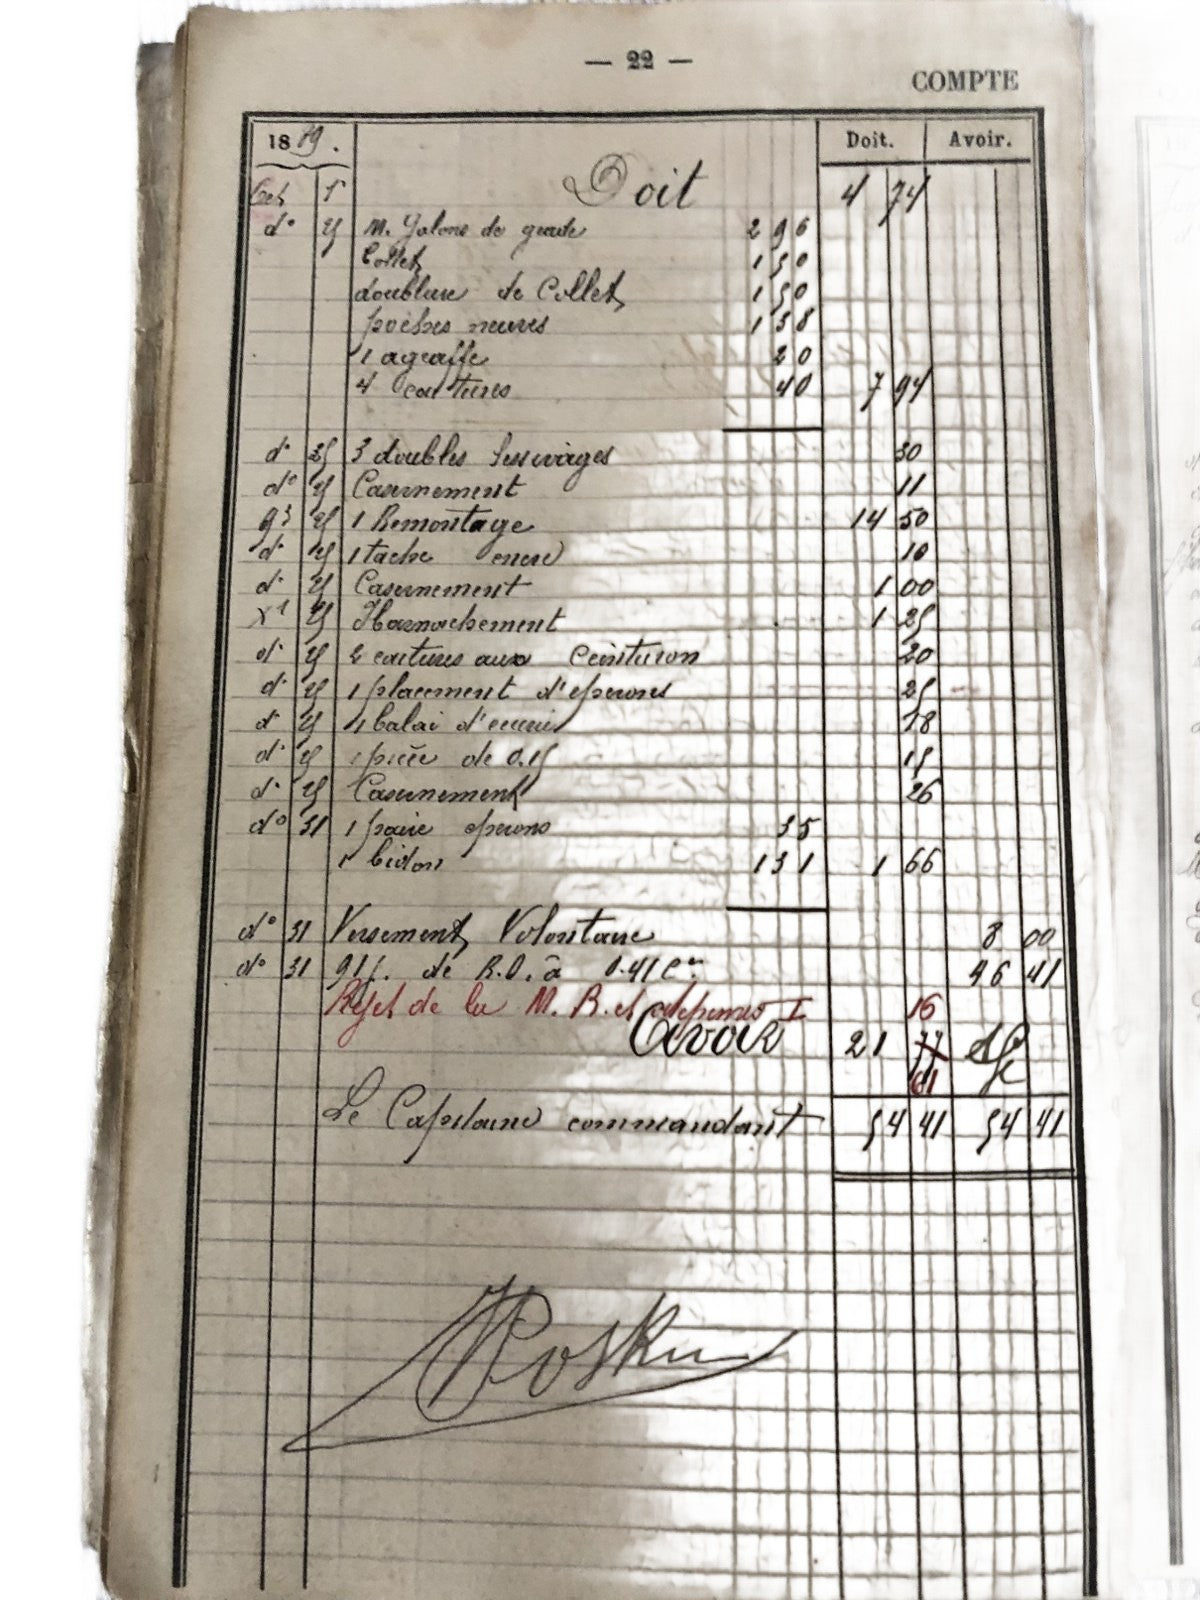 — 22 —
COMPTE
1889. Doit. Avoir.
Oct 1er Doit 4 74
do 25 M. Galons de grade 2 96
Collet 1 50
doublure de Collet 1 50
poches neuves 1 38
1 agraffe 20
4 coutures 40 7 94
do 25 3 doubles lessivages 30
do 25 Casernement 11
9bre 25 1 Remontage 14 50
do 25 1 tache encre 10
do 25 Casernement 1 00
Xbre 25 Harnachement 1 25
do 25 2 coutures aux ceinturon 20
do 25 1 placement d'eperons 25
do 25 1 balai d'ecurie 18
do 25 1 pièce de 0.15 15
do 25 Casernement 26
do 31 1 paire eperons 35
1 bidon 1 31 1 66
do 31 Versement Volontaire 8 00
do 31 91 j. de à 0.41 46 41
Rejet de la M. 16
Avoir 21 77
61
Le Capitaine commandant 54 41 54 41